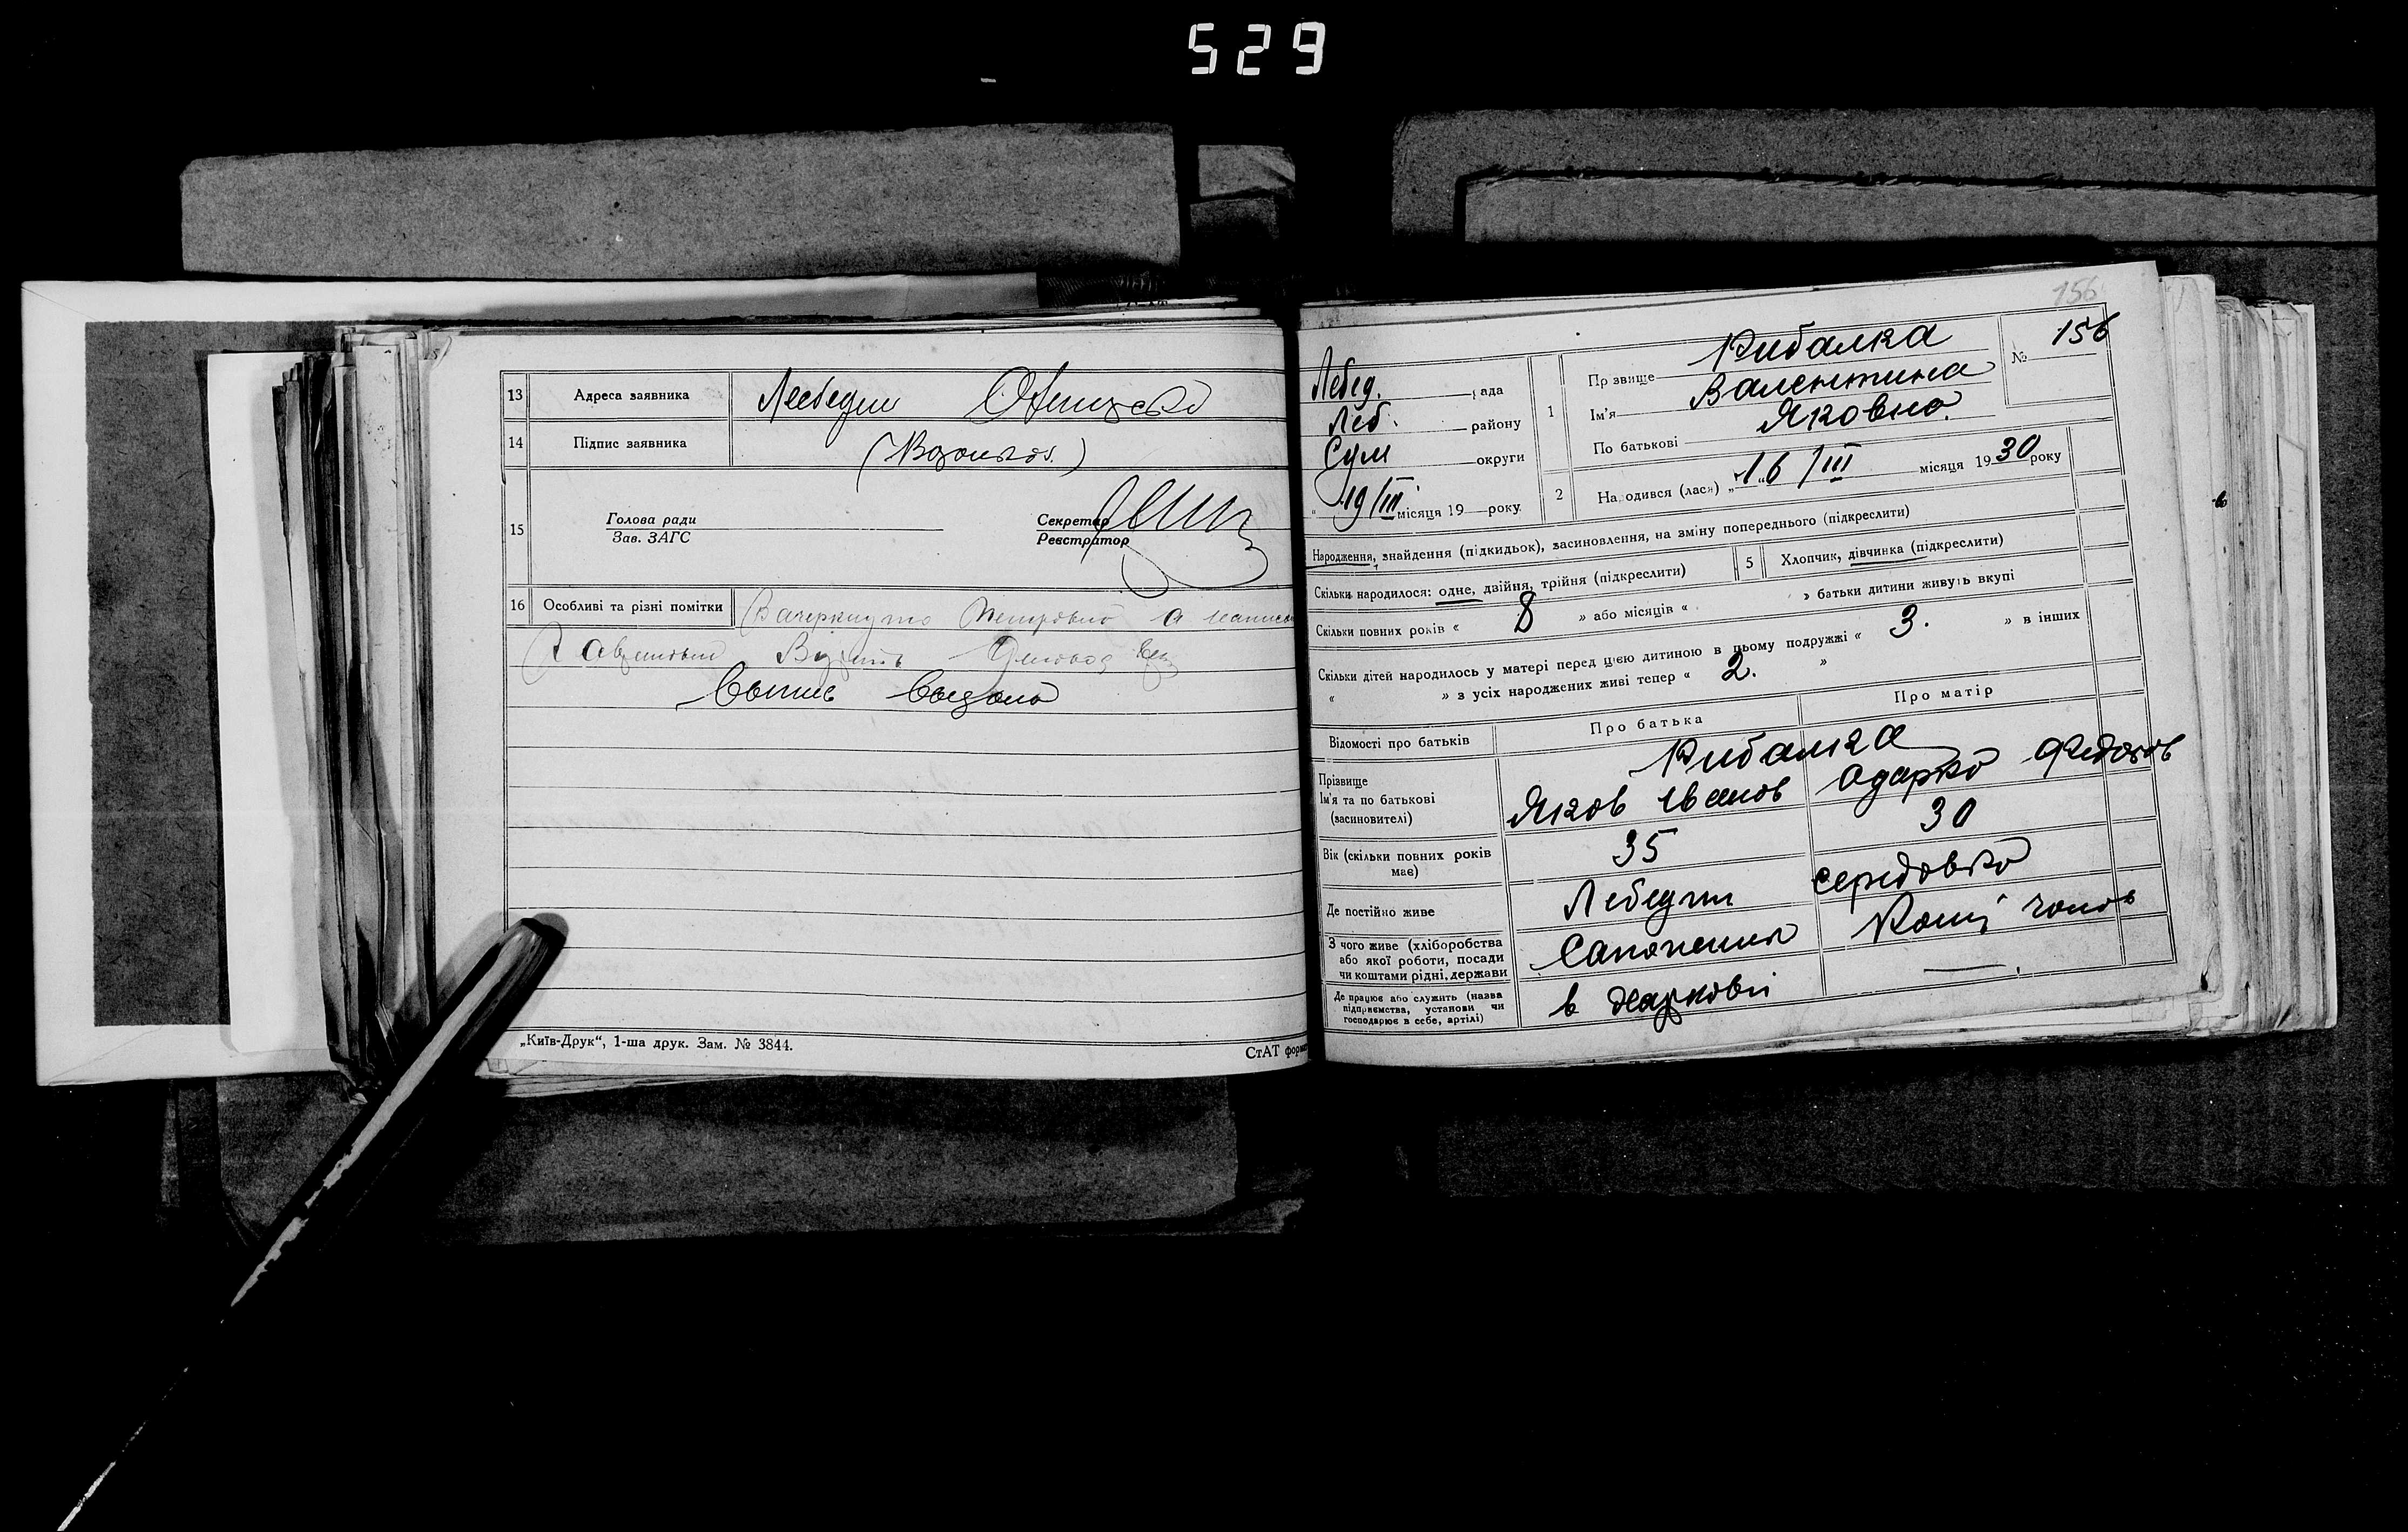 529
13 Адреса заявника Лебедин
14 Підпис заявника
15 Голова ради
Зав. ЗАГС
Секретар
Реєстратор
16 Особливі та різні помітки Зачеркнуто Петровно а написано
выпис выдано
„Київ-Друк“, 1-ша друк. Зам. № 3844.
СтАТ форм
156
Лебед. рада
Леб. району
Сум округи
„19/III місяця 19 року.
1 Прізвище Рибалка
Ім'я Валентина
По батькові Яковна.
№ 156
2 Народився (лася) „16/III місяця 1930 року
Народження, знайдення (підкидьок), засиновлення, на зміну попереднього (підкреслити)
Скільки народилося: одне, двійня, трійня (підкреслити) 5 Хлопчик, дівчинка (підкреслити)
Скільки повних років « 8 » або місяців « » батьки дитини живуть вкупі
Скільки дітей народилось у матері перед цією дитиною в цьому подружжі « 3. » в інших
« » з усіх народжених живі тепер « 2. »
Відомості про батьків Про батька Про матір
Прізвище Рибалка
Ім'я та по батькові Яков Іванов Одарка Федоров
(засиновителі)
Вік (скільки повних років має) 35 30
Де постійно живе Лебедин
З чого живе (хліборобства
або якої роботи, посади
чи коштами рідні, держави
Де працює або служить (назва
підприємства, установи чи
господарює в себе, артілі) в Харкові —.